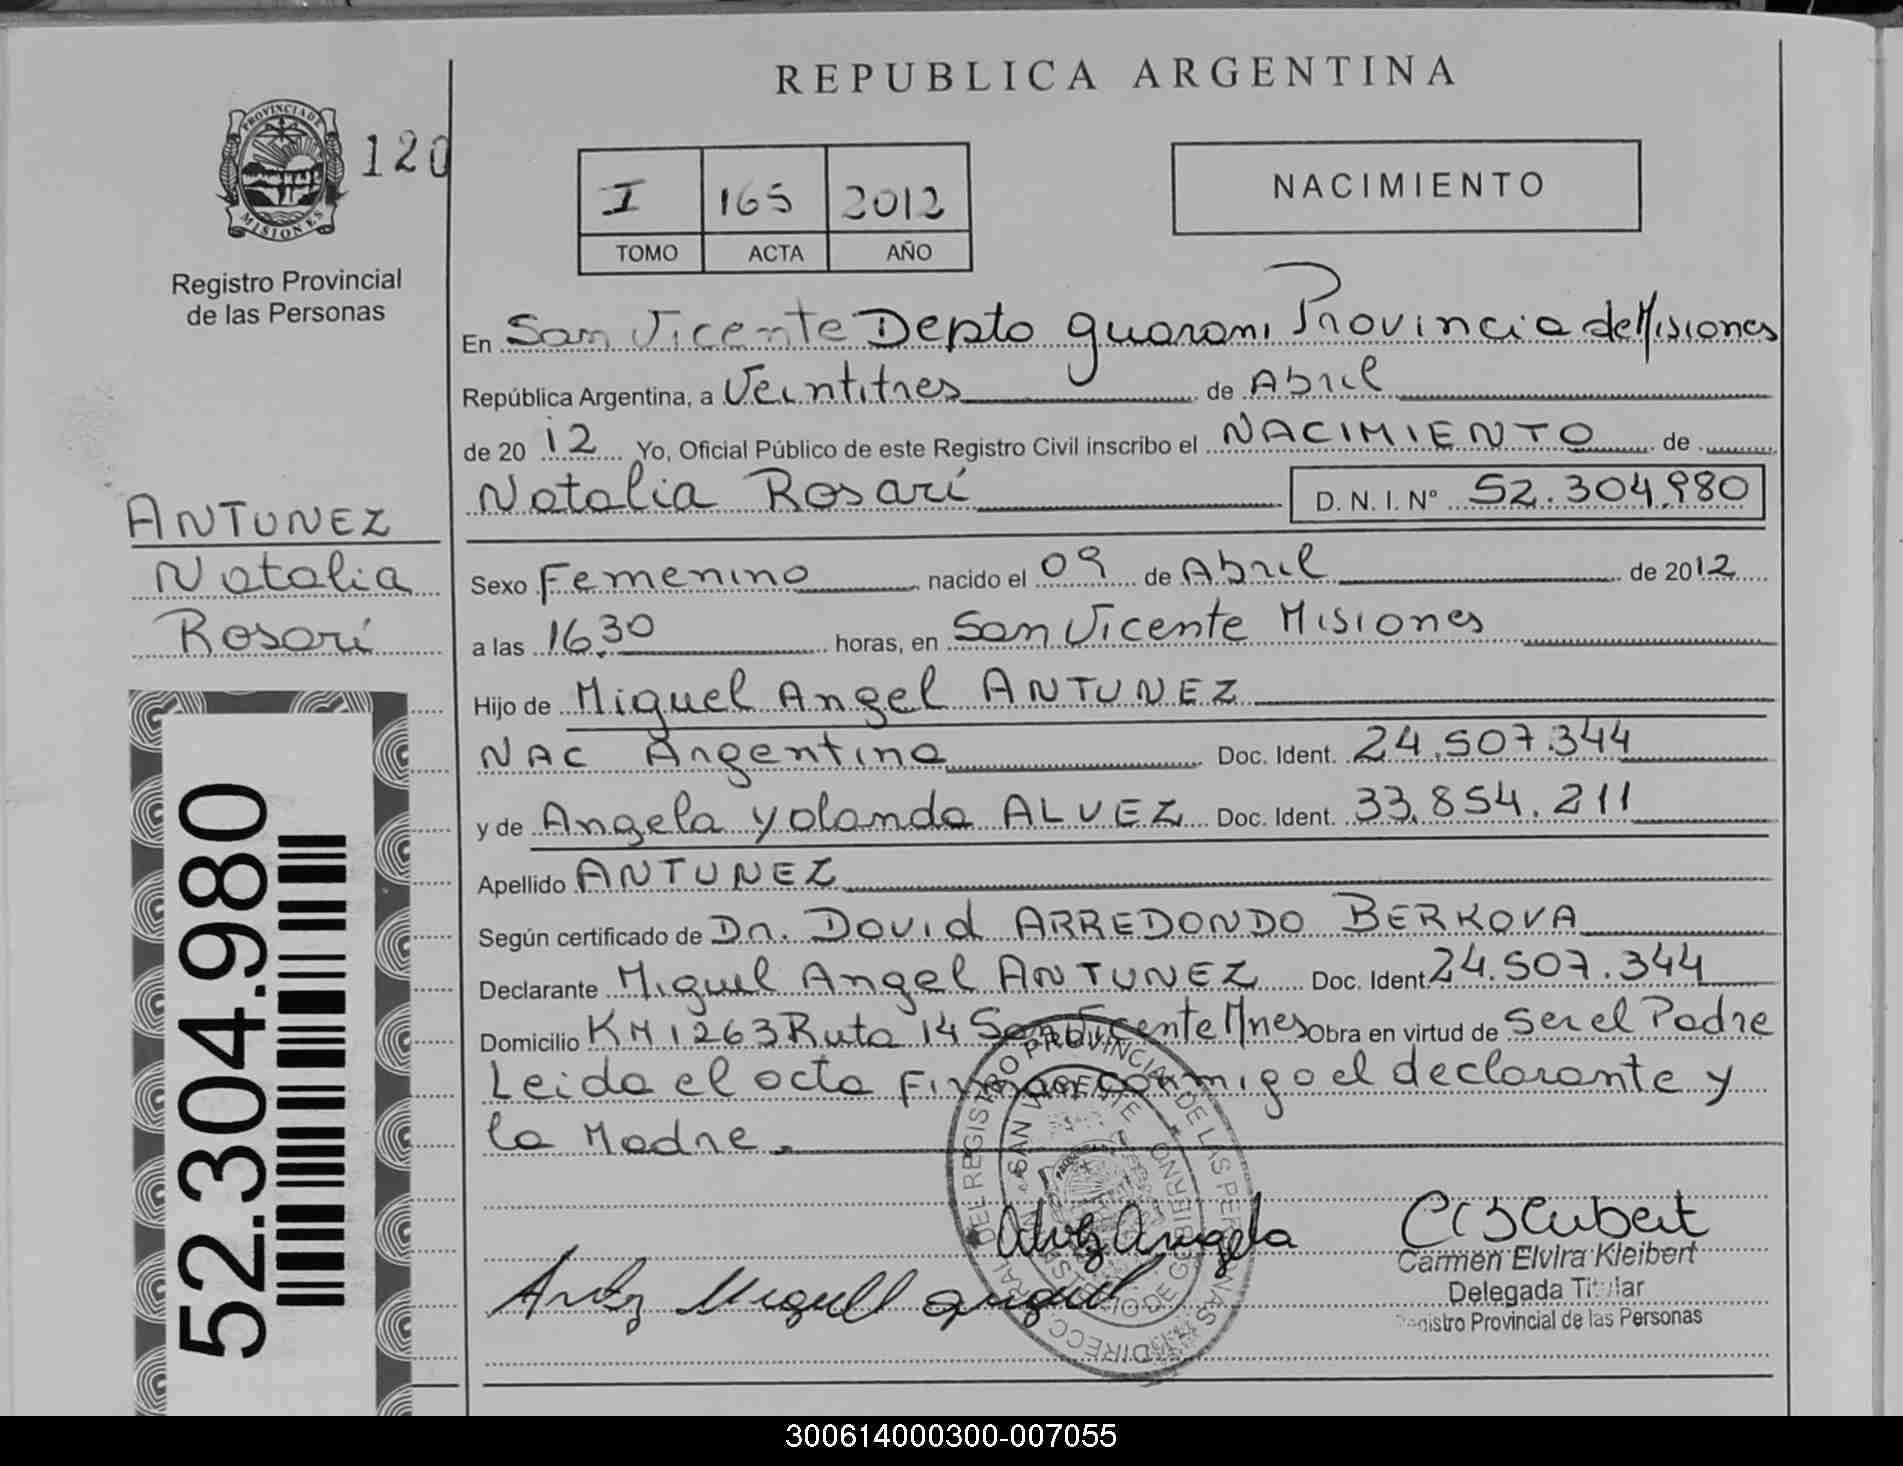 REPUBLICA ARGENTINA
PROVINCIA DE
MISIONES
120
Registro Provincial
de las Personas
I 165 2012
TOMO ACTA AÑO
NACIMIENTO
En San Vicente Depto guarani Provincia de Misiones
República Argentina, a Veintitres de Abril
de 2012 Yo, Oficial Público de este Registro Civil inscribo el NACIMIENTO de
Natalia Rosarí D. N. I. Nº 52.304.980
ANTUNEZ
Natalia
Rosarí
Sexo Femenino nacido el 09 de Abril de 2012
a las 16.30 horas, en San Vicente Misiones
Hijo de Miguel Angel ANTUNEZ
NAC Argentina Doc. Ident. 24.507.344
y de Angela Yolanda ALVEZ Doc. Ident. 33.854.211
Apellido ANTUNEZ
Según certificado de Dr. David ARREDONDO BERKOVA
Declarante Miguel Angel ANTUNEZ Doc. Ident 24.507.344
Domicilio KM 1263 Ruta 14 San Vicente Mnes Obra en virtud de Ser el Padre
Leida el acta Firman conmigo el declarante y
la Madre.
52.304.980
DEL REGISTRO PROVINCIAL DE LAS PERSONAS
SAN VICENTE
Alvez Angela
Carmen Elvira Kleibert
Delegada Titular
Registro Provincial de las Personas
300614000300-007055